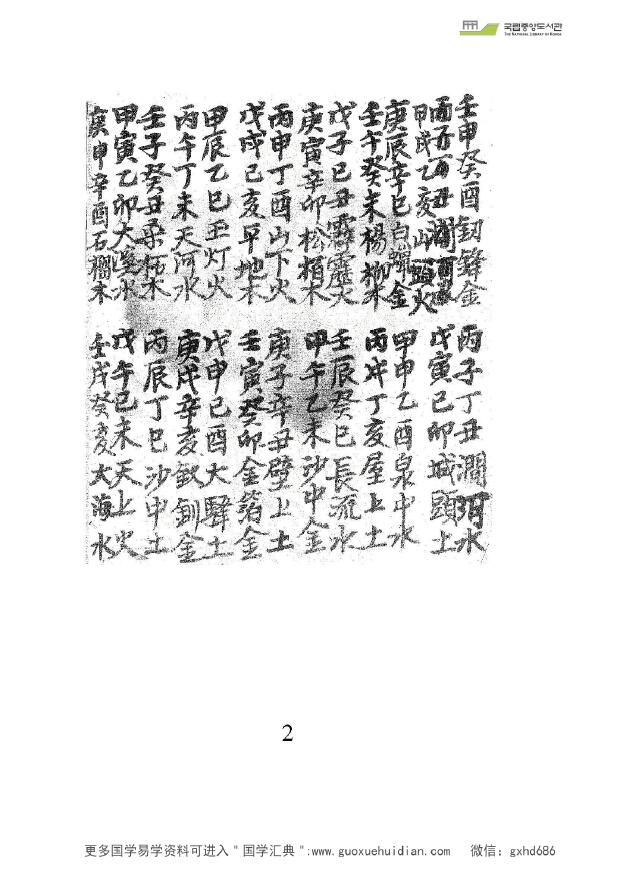 국립중앙도서관
THE NATIONAL LIBRARY OF KOREA
壬申癸酉釼鋒金
丙子丁丑澗河
甲戌乙亥山頭火
丙子丁丑澗河水
戊寅己卯城頭土
庚辰辛巳白鑞金
壬午癸未楊柳木
甲申乙酉泉中水
丙戌丁亥屋上土
戊子己丑霹靂火
庚寅辛卯松栢木
壬辰癸巳長流水
甲午乙未沙中金
丙申丁酉山下火
戊戌己亥平地木
庚子辛丑壁上土
壬寅癸卯金箔金
甲辰乙巳玉灯火
丙午丁未天河水
戊申己酉大驛土
庚戌辛亥釵釧金
壬子癸丑桑柘木
甲寅乙卯大溪水
丙辰丁巳沙中土
戊午己未天上火
庚申辛酉石榴木
壬戌癸亥大海水
2
更多国学易学资料可进入＂国学汇典＂:www.guoxuehuidian.com 微信：gxhd686